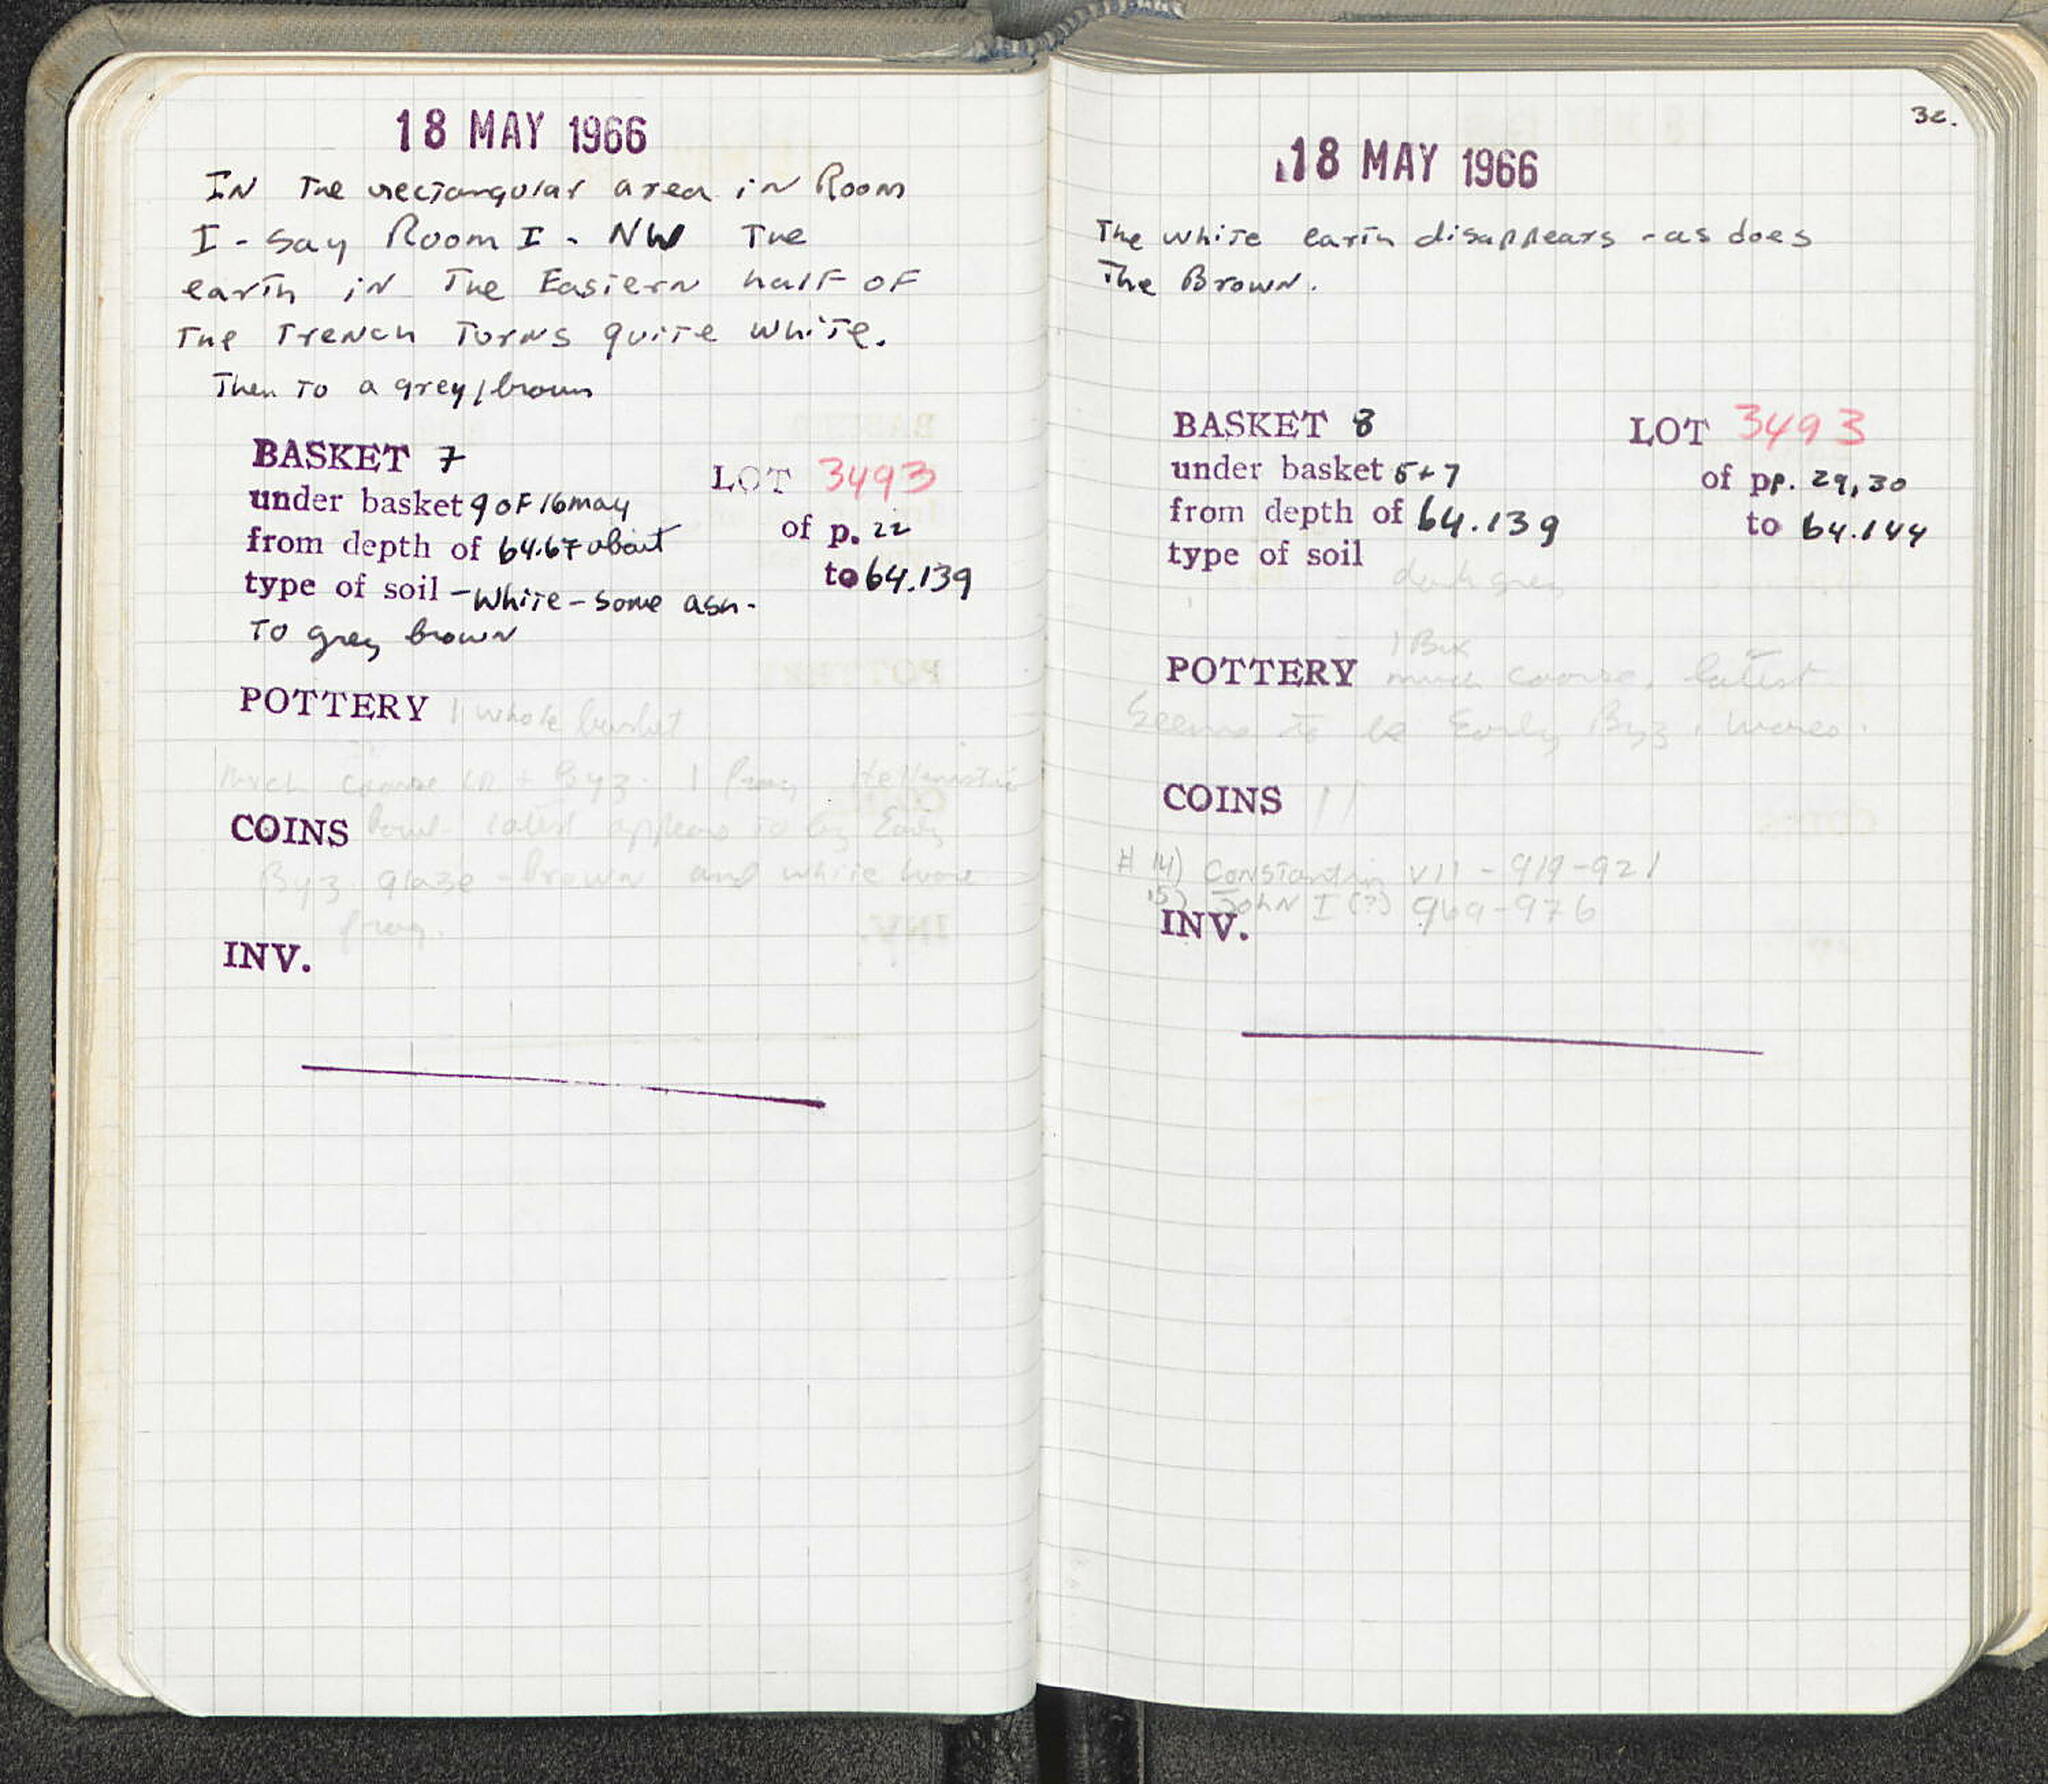 18 MAY 1966
IN The rectangular area in Room
I - say Room I - NW The
earth in The Eastern half of
The Trench Turns quite white.
Then To a grey/brown
BASKET 7
LOT 3493
under basket 9 of 16 may
of p. 22
from depth of 64.67 about
to 64.139
type of soil - White - some ash -
To grey brown
POTTERY 1 whole basket
much coarse LR + Byz. 1 frag Hellenistic
COINS bowl. latest appears to be Early
Byz glaze - brown and white ware
frag.
INV.
32.
18 MAY 1966
The white earth disappears - as does
The Brown.
BASKET 8
LOT 3493
under basket 5+7
of pp. 29, 30
from depth of 64.139
to 64.144
type of soil
dark grey
1 Box
POTTERY much coarse, latest
Seems to be Early Byz. wares.
COINS 11
# 14) Constantin VII - 919-921
15) John I (?) 969-976
INV.